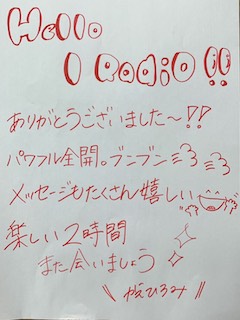 Hello
I Radio!!
ありがとうございました〜!!
パワフル全開。ブンブン
メッセージもたくさん嬉しい
楽しい2時間
また会いましょう
\\ がえひろみ //